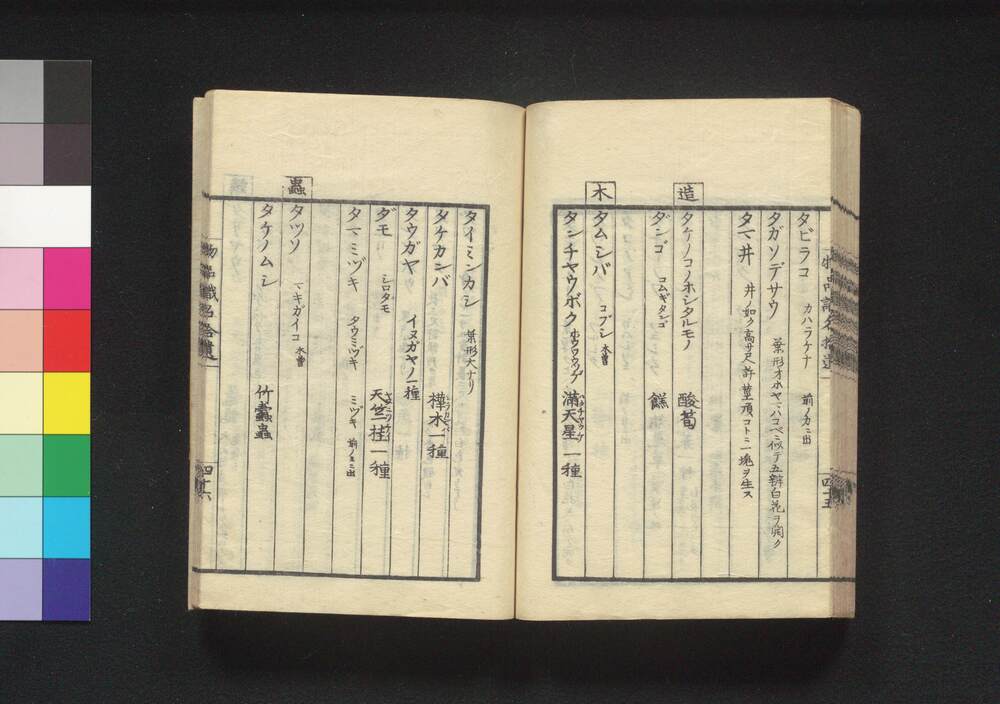 タビラコ カハラケナ 前ノカニ出
タガソデサウ 葉形オホヤマハコベニ似テ五瓣白花ヲ開ク
タマ井 井ノ如ク高サ尺許莖頂コトニ一塊ヲ生ス
造
タケノコノホシタルモノ 酸筍
ダンゴ コムギダンゴ 餻
木
タムシバ コブシ 水曽
タンチヤウボク 滿天星一種
四十五
タイミンカシ 葉形大ナリ
タケカンバ 樺木一種
タウガヤ イヌガヤノ一種
ダモ シロダモ 天竺桂一種
タマミヅキ タウミヅキ ミヅキ 前ノミニ出
蟲
タツソ マキガイコ 水曽
タケノムシ 竹蠹蟲
物品識名拾遺
四十六